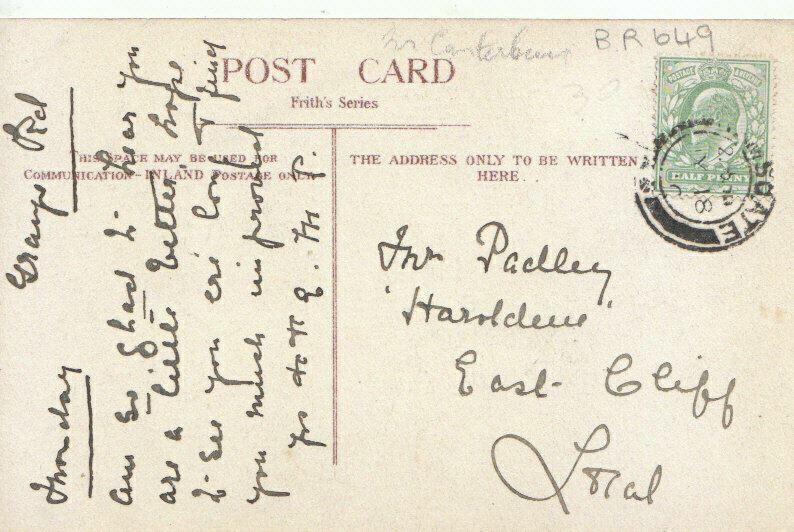 nr Canterbury
BR649
POST CARD
Frith's Series
THIS SPACE MAY BE USED FOR
COMMUNICATION - INLAND POSTAGE ONLY
THE ADDRESS ONLY TO BE WRITTEN
HERE.
POSTAGE
HALF PENNY
Monday
Grange Rd
am so glad to hear you
are a little better, hope
to see you ere long & find
you much improved
Mr Padley
"Haroldene"
East Cliff
Local